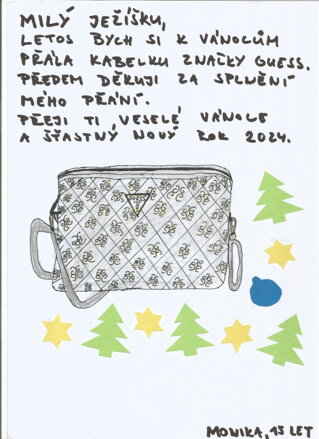 MILÝ JEŽÍŠKU,
LETOS BYCH SI K VÁNOCŮM
PŘÁLA KABELKU ZNAČKY GUESS.
PŘEDEM DĚKUJI ZA SPLNĚNÍ
MÉHO PŘÁNÍ.
PŘEJI TI, VESELÉ VÁNOCE
A ŠŤASTNÝ NOVÝ ROK 2024.
MONIKA, 13 LET